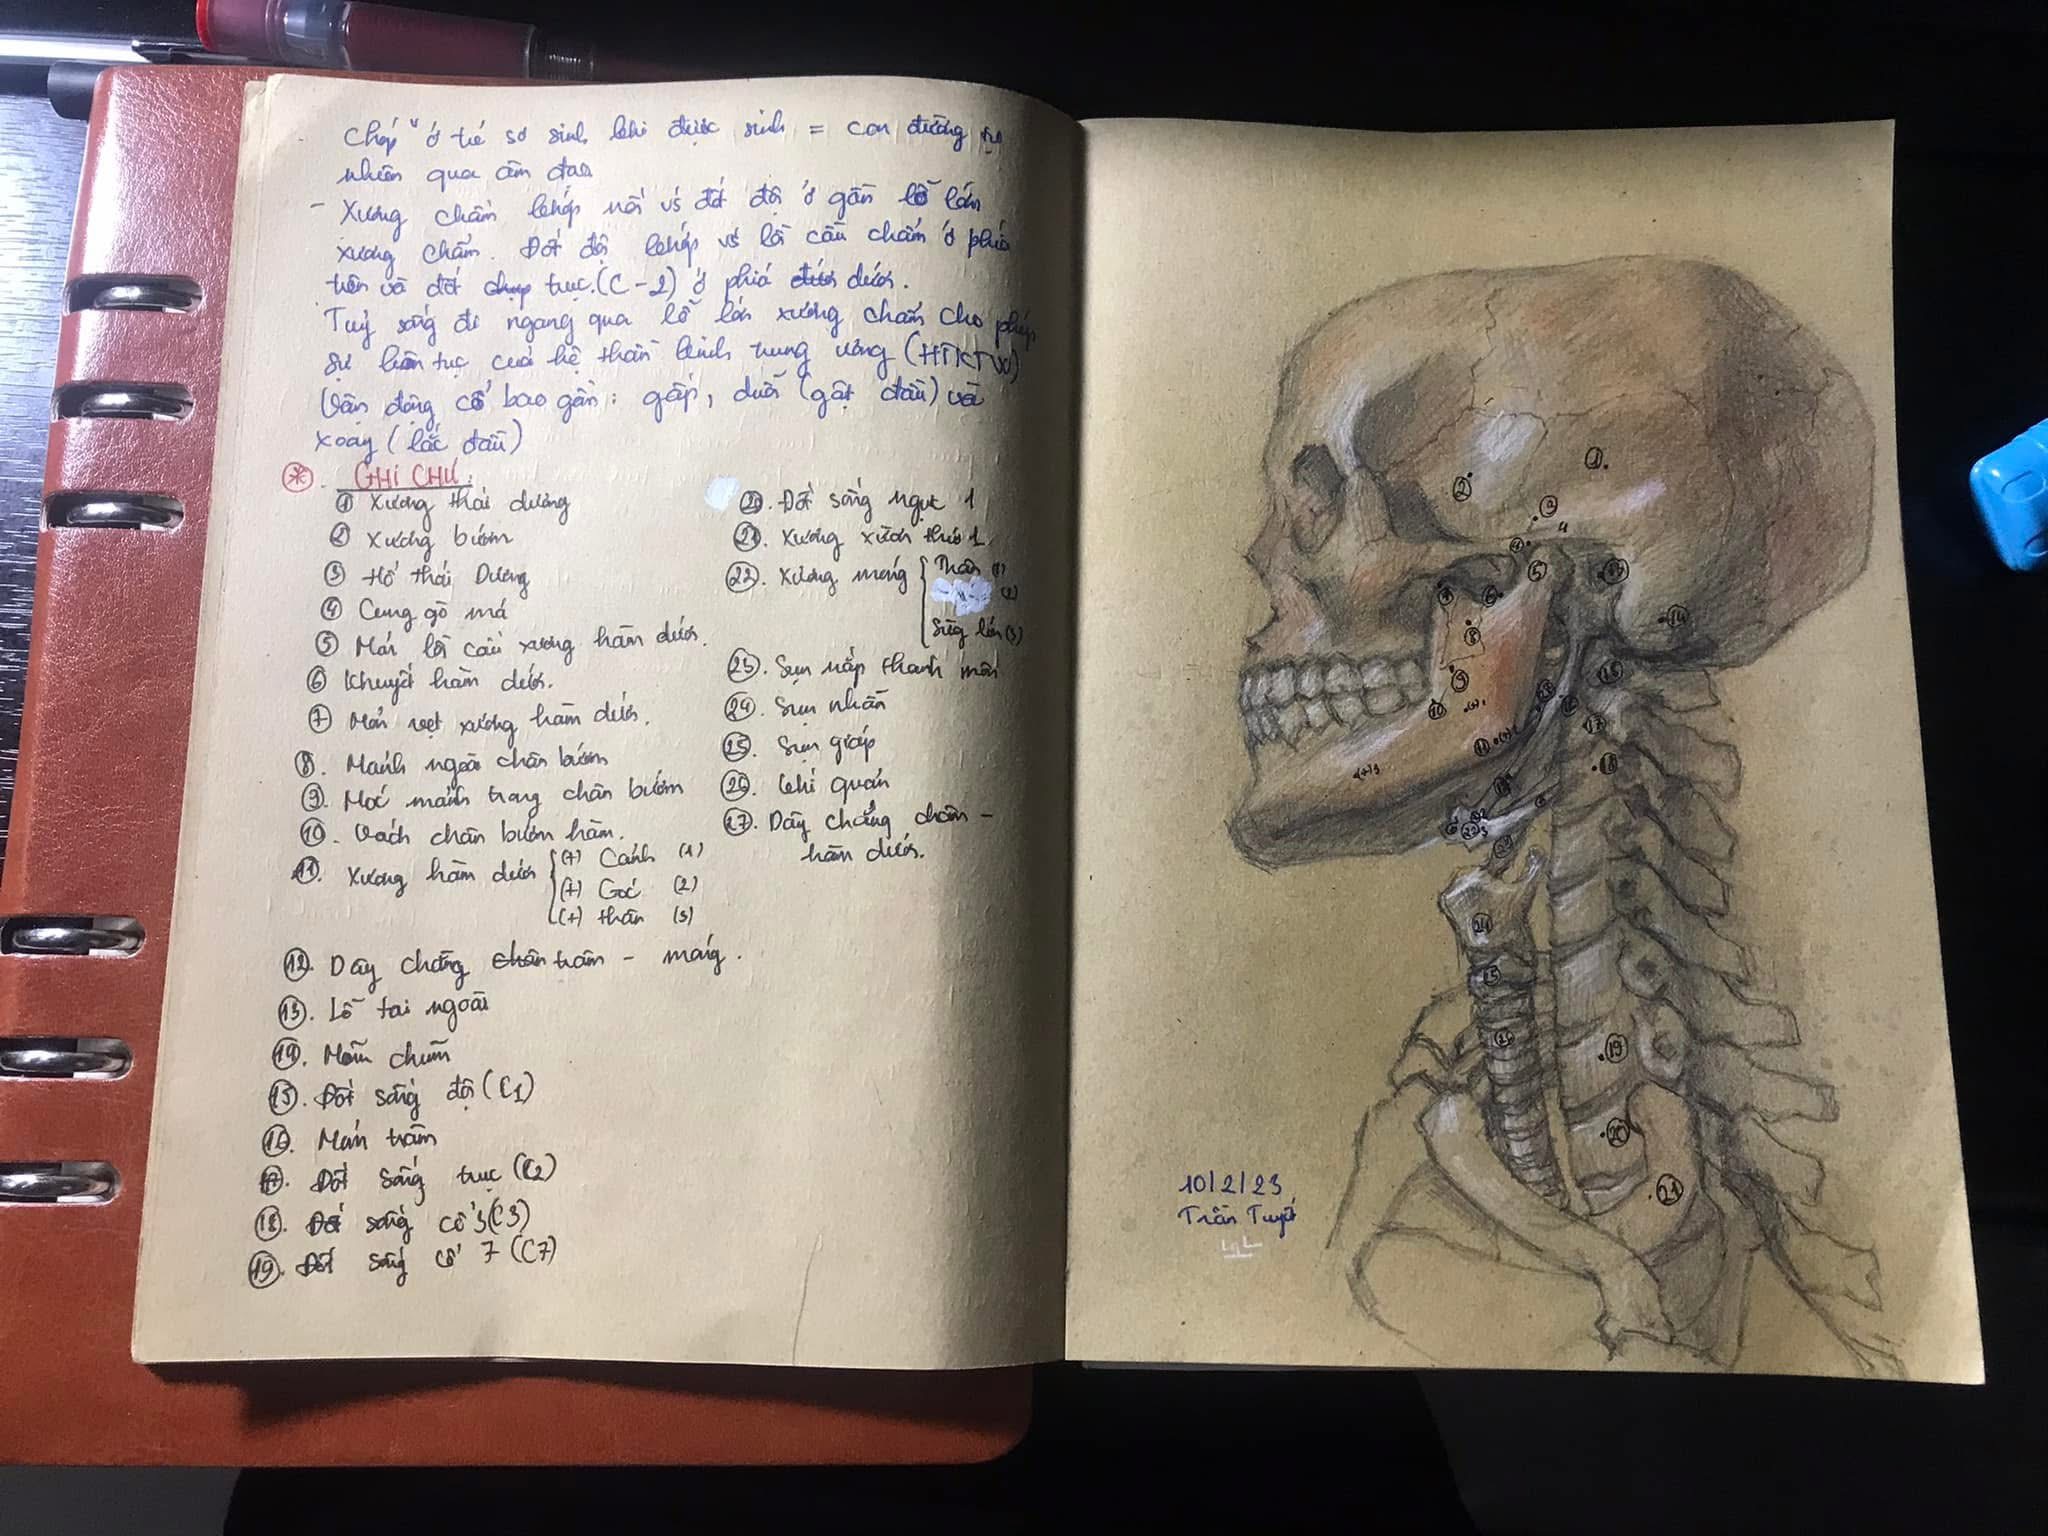 chóp" ở trẻ sơ sinh khi được sinh = con đường tự
nhiên qua âm đạo
- Xương chẩm khớp nối vs đốt đội ở gần lỗ lớn
xương chẩm. Đốt đội khớp vs lồi cầu chẩm ở phía
trên và đốt trục (C-2) ở phía dưới.
Tuỷ sống đi ngang qua lỗ lớn xương chẩm cho phép
sự liên tục của hệ thần kinh trung ương (HTKTW)
Vận động cổ bao gồm: gấp, duỗi (gật đầu) và
xoay (lắc đầu)
* GHI CHÚ:
1 Xương thái dương
2 Xương bướm
3 Hố thái Dương
4 Cung gò má
5 Mỏm lồi cầu xương hàm dưới.
6 Khuyết hàm dưới.
7 Mỏm vẹt xương hàm dưới.
8. Mảnh ngoài chân bướm
9. Móc mảnh trong chân bướm
10. Vách chân bướm hàm.
11. Xương hàm dưới
(+) Cành (1)
(+) Góc (2)
(+) thân (3)
12. Dây chằng trâm - móng.
13. Lỗ tai ngoài
14. Mỏm chũm
15. Đốt sống đội (C1)
16. Mỏm trâm
17. Đốt sống trục (C2)
18. Đốt sống cổ 3 (C3)
19. Đốt sống cổ 7 (C7)
20. Đốt sống ngực 1
21. Xương sườn thứ 1.
22. Xương móng
Thân (1)
(2)
Sừng lớn (3)
23. Sụn nắp thanh môn
24. Sụn nhẫn
25. Sụn giáp
26. Khí quản
27. Dây chằng châm -
hàm dưới.
1
2
3
4
4
5
13
7
6
8
14
9
15
10
16
17
11
18
24
25
26
19
20
21
10/2/23
Trần Tuyết